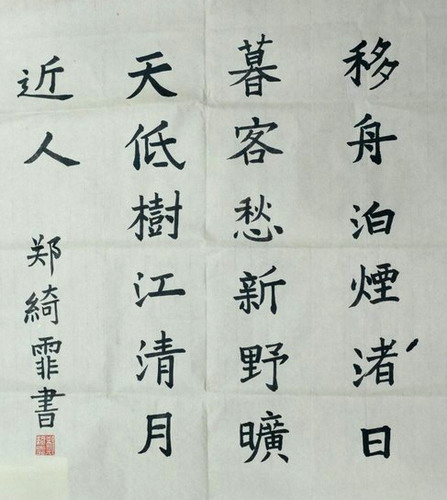 移舟泊煙渚日
暮客愁新野曠
天低樹江清月
近人
郑綺霏書